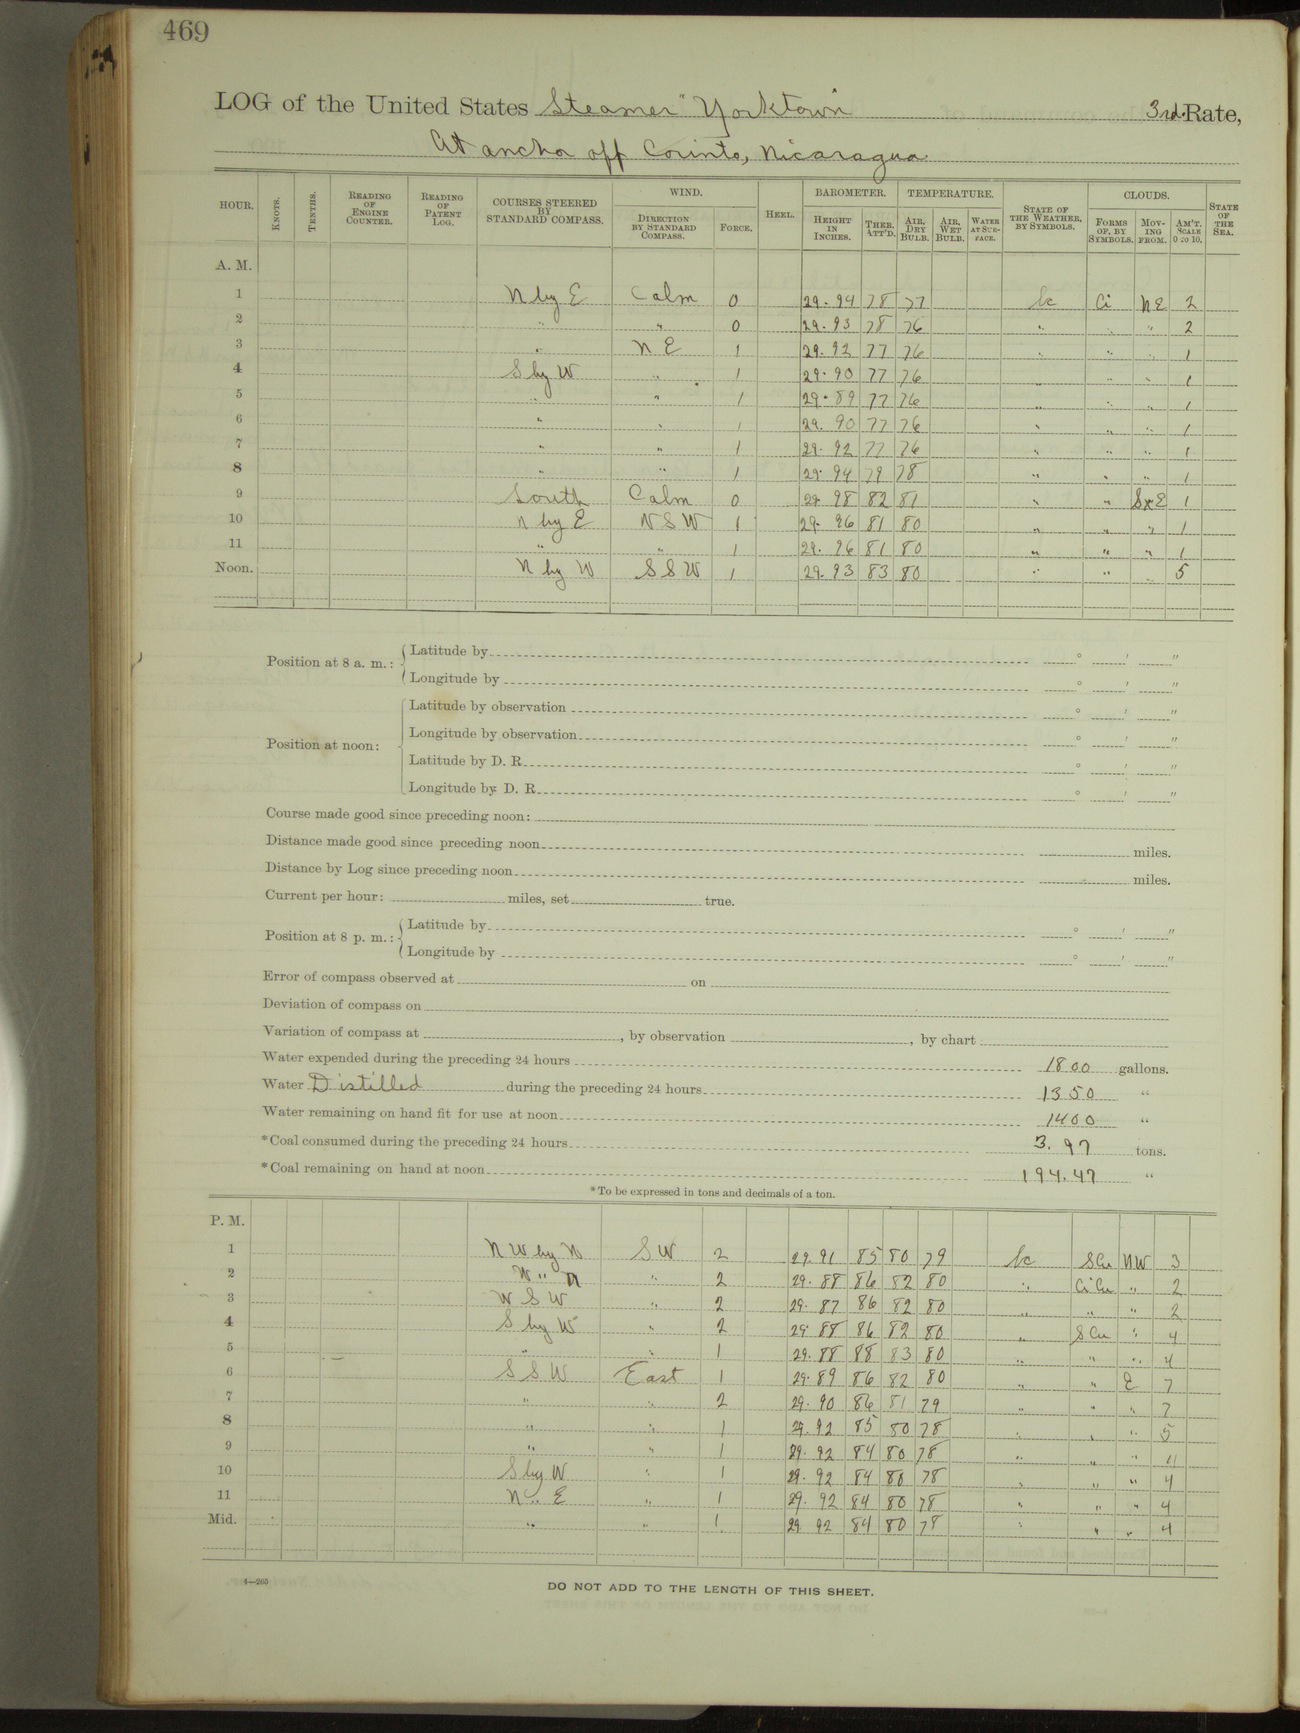 469
LOG of the United States Steamer "Yorktown 3rd. Rate,
At anchor off Corinto, Nicaragua
HOUR. KNOTS. TENTHS. READING OF ENGINE COUNTER. READING OF PATENT LOG. COURSES STEERED BY STANDARD COMPASS. WIND. DIRECTION BY STANDARD COMPASS. FORCE. HEEL. BAROMETER. HEIGHT IN INCHES. THER. ATT'D. TEMPERATURE. AIR, DRY BULB. AIR, WET BULB. WATER AT SURFACE. STATE OF THE WEATHER, BY SYMBOLS. CLOUDS. FORMS OF, BY SYMBOLS. MOVING FROM. AM'T. SCALE 0 TO 10. STATE OF THE SEA.
A. M.
1 N by E Calm 0 29.94 78 77 bc Ci NE 2
2 " " 0 29.93 78 76 " " " 2
3 " N E 1 29.92 77 76 " " " 1
4 S by W " 1 29.90 77 76 " " " 1
5 " " 1 29.89 77 76 " " " 1
6 " " 1 29.90 77 76 " " " 1
7 " " 1 29.92 77 76 " " " 1
8 " " 1 29.94 79 78 " " " 1
9 South Calm 0 29.98 82 81 " " 1
10 N by E 1 29.96 81 80 " " " 1
11 " " 1 29.96 81 80 " " " 1
Noon. N by W S S W 1 29.93 83 80 " " 5
Position at 8 a. m.: Latitude by ° ' "
Longitude by ° ' "
Position at noon: Latitude by observation ° ' "
Longitude by observation ° ' "
Latitude by D. R. ° ' "
Longitude by D. R. ° ' "
Course made good since preceding noon:
Distance made good since preceding noon miles.
Distance by Log since preceding noon miles.
Current per hour: miles, set true.
Position at 8 p. m.: Latitude by ° ' "
Longitude by ° ' "
Error of compass observed at on
Deviation of compass on
Variation of compass at , by observation , by chart
Water expended during the preceding 24 hours 1800 gallons.
Water Distilled during the preceding 24 hours 1350 "
Water remaining on hand fit for use at noon 1400 "
*Coal consumed during the preceding 24 hours 3.97 tons.
*Coal remaining on hand at noon 194.47 "
*To be expressed in tons and decimals of a ton.
P. M.
1 N W by N S W 2 29.91 85 80 79 bc SCu NW 3
2 W " N " 2 29.88 86 82 80 " CiCu " 2
3 W S W " 2 29.87 86 82 80 " " " 2
4 S by W " 2 29.88 86 82 80 " SCu " 4
5 " " 1 29.88 88 83 80 " " " 4
6 S S W East 1 29.89 86 82 80 " " E 7
7 " " 2 29.90 86 81 79 " " " 7
8 " " 1 29.92 85 80 78 " " " 5
9 " " 1 29.92 84 80 78 " " " 4
10 S by W " 1 29.92 84 80 78 " " " 4
11 N " E " 1 29.92 84 80 78 " " " 4
Mid. " " 1 29.92 84 80 78 " " " 4
4—265
DO NOT ADD TO THE LENGTH OF THIS SHEET.